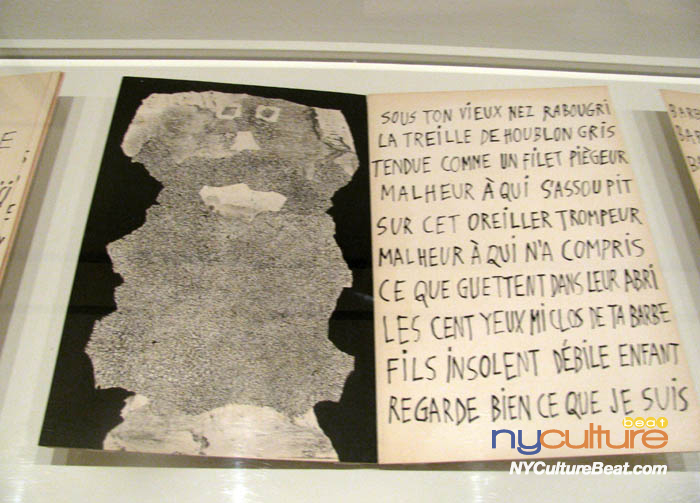 SOUS TON VIEUX NEZ RABOUGRI
LA TREILLE DE HOUBLON GRIS
TENDUE COMME UN FILET PIÈGEUR
MALHEUR À QUI S'ASSOUPIT
SUR CET OREILLER TROMPEUR
MALHEUR À QUI N'A COMPRIS
CE QUE GUETTENT DANS LEUR ABRI
LES CENT YEUX MI CLOS DE TA BARBE
FILS INSOLENT DÉBILE ENFANT
REGARDE BIEN CE QUE JE SUIS
BARB
BAR
BA
nyculture beat
NYCultureBeat.com